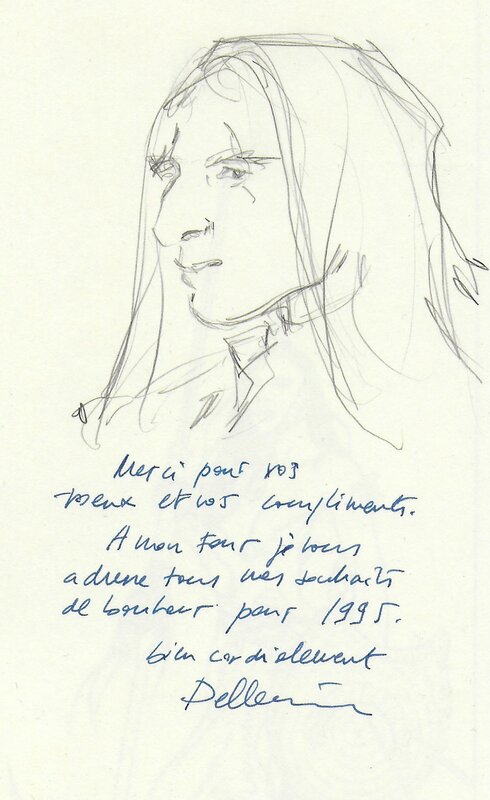 Merci pour vos
voeux et vos compliments.
A mon tour je vous
adresse tous mes souhaits
de bonheur pour 1995.
bien cordialement